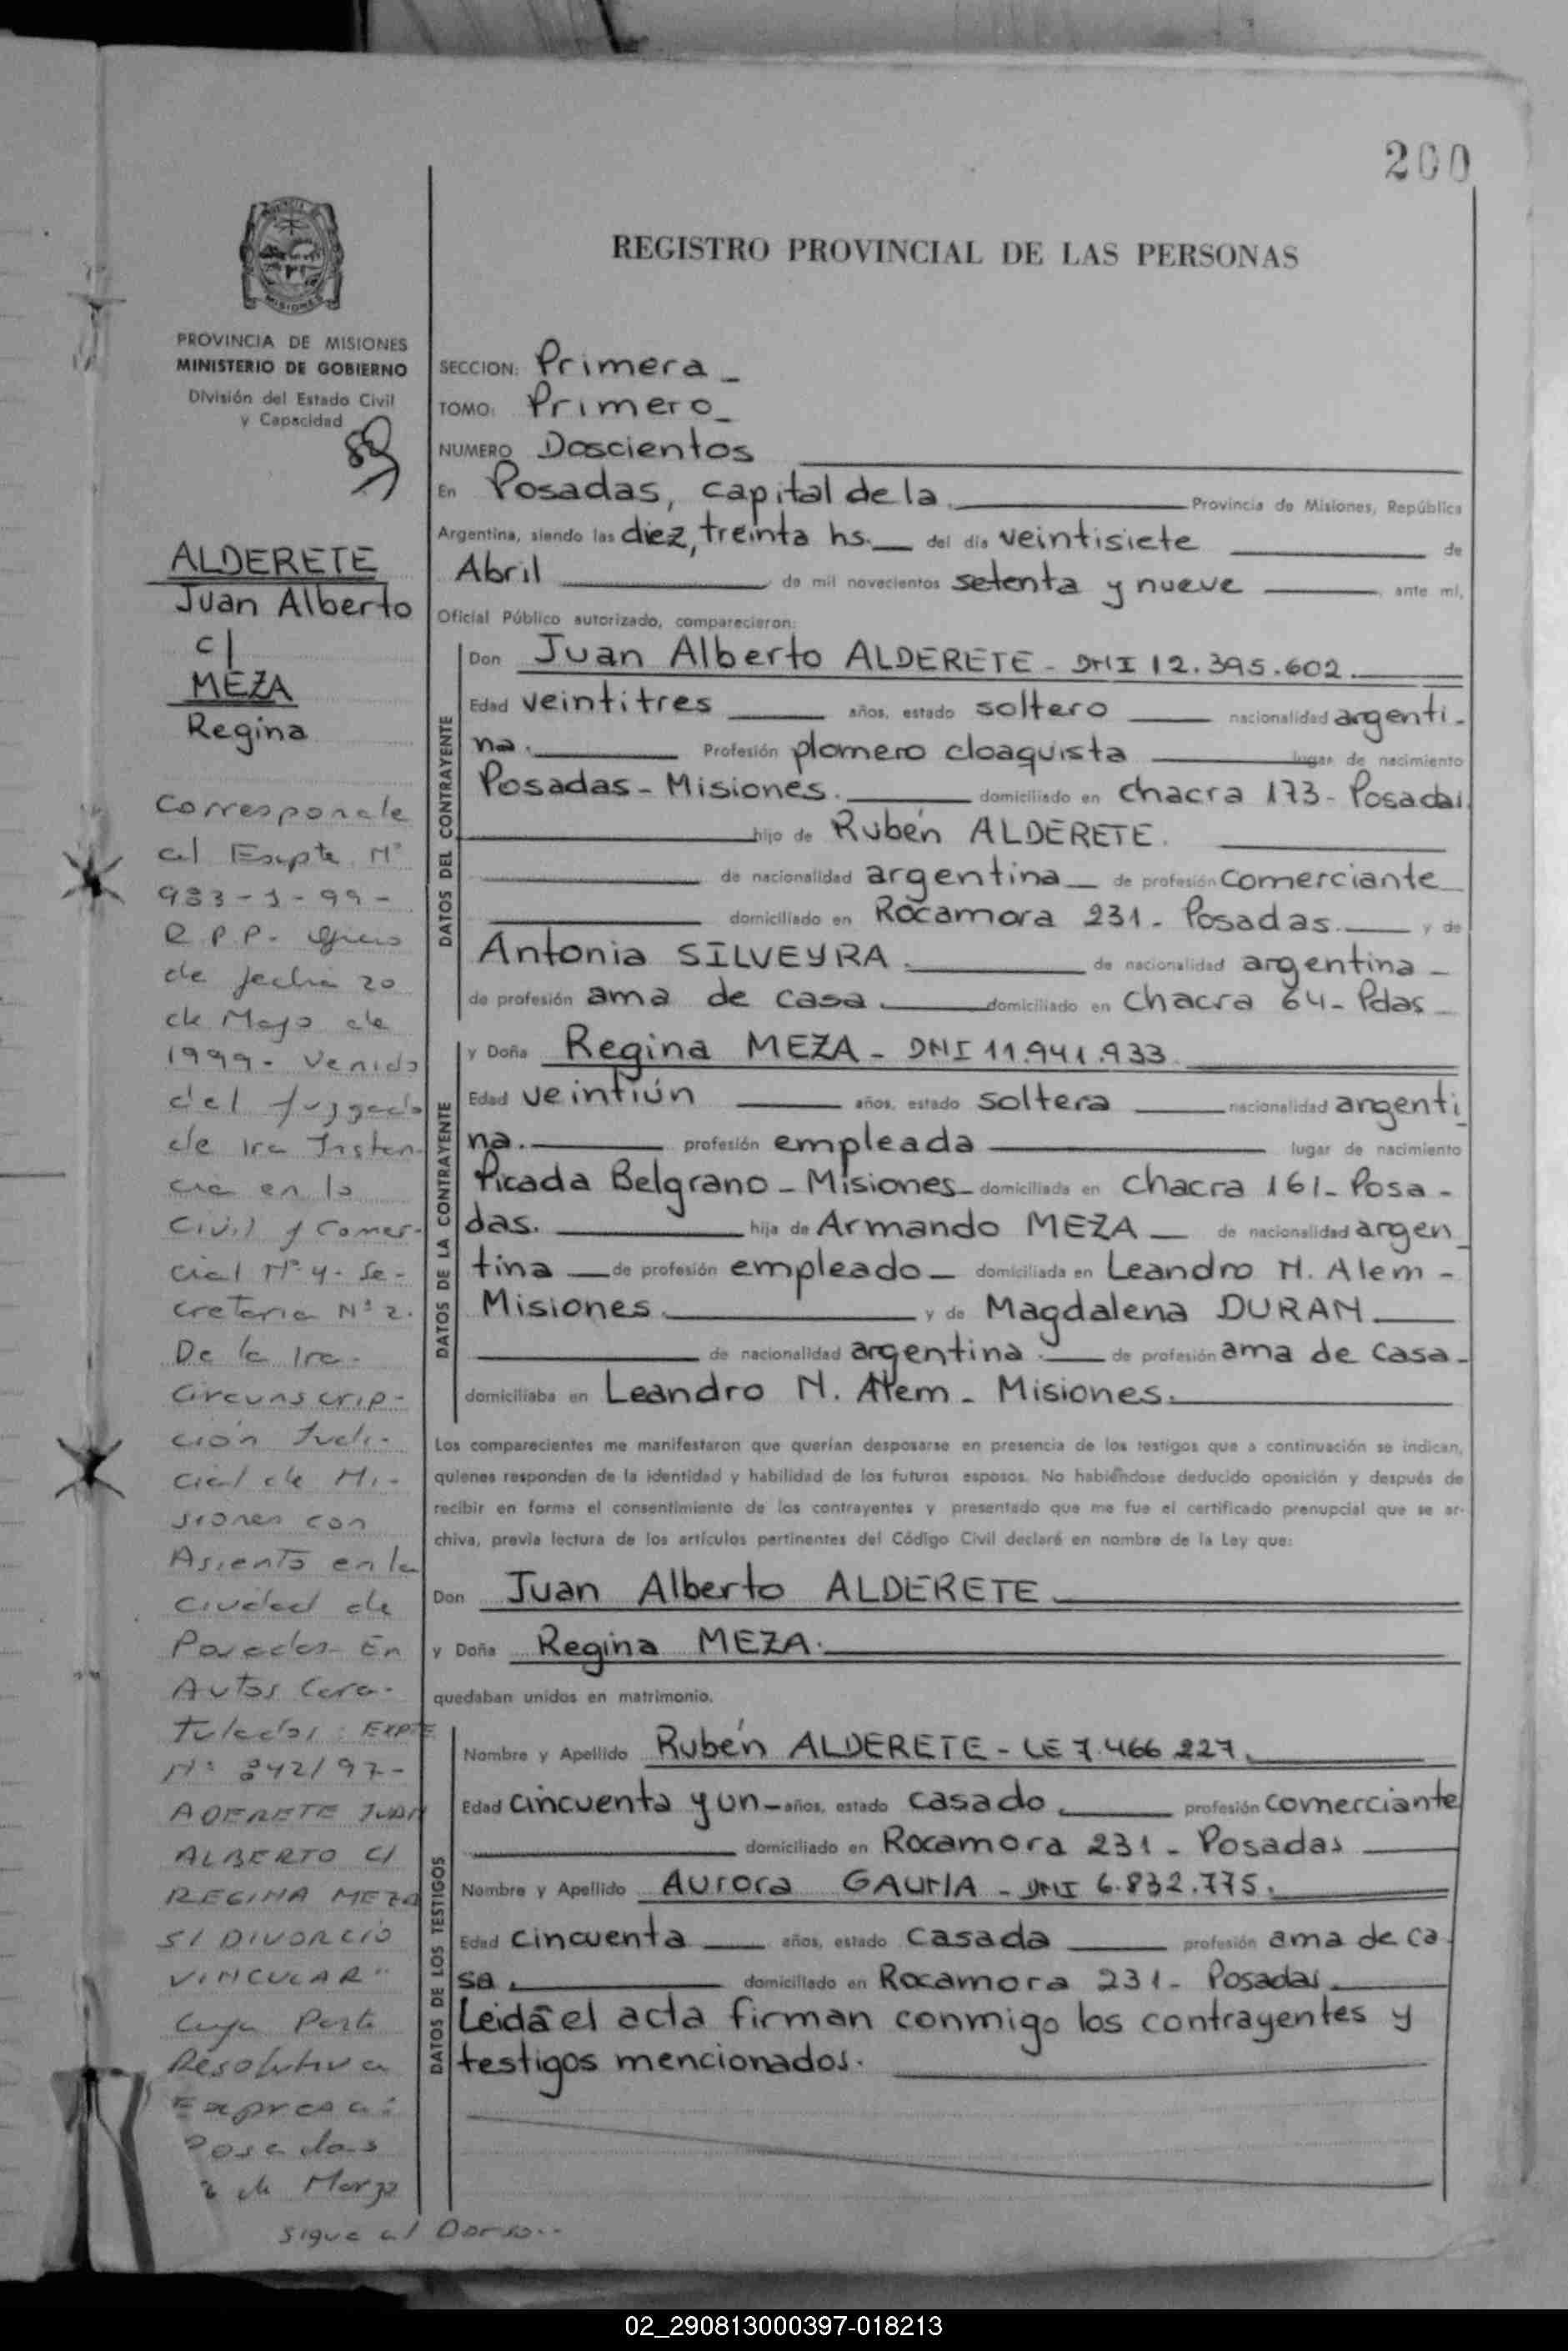 200
REGISTRO PROVINCIAL DE LAS PERSONAS
MISIONES
PROVINCIA DE MISIONES
MINISTERIO DE GOBIERNO
División del Estado Civil
y Capacidad
ALDERETE
Juan Alberto
c/
MEZA
Regina
Corresponde
al Expte. N°
933-1-99-
R.P.P. Oficio
de fecha 20
de Mayo de
1999- Venido
del Juzgado
de 1ra Instan-
cia en lo
Civil y Comer-
cial N° 4- Se-
cretaria N° 2.
De la 1ra.
Circunscrip-
ción Judi-
cial de Mi-
siones con
Asiento en la
Ciudad de
Posadas- En
Autos Cara-
tulados: EXPTE
N° 342/97-
ADERETE JUAN
ALBERTO C/
REGINA MEZA
S/ DIVORCIO
VINCULAR"
Cuya Parte
Resolutiva
Expresa:
Posadas
de Marzo
sigue al Dorso..
SECCION: Primera_
TOMO: Primero_
NUMERO Doscientos
En Posadas, capital de la Provincia de Misiones, República
Argentina, siendo las diez, treinta hs. del día veintisiete de
Abril de mil novecientos setenta y nueve, ante mí,
Oficial Público autorizado, comparecieron:
DATOS DEL CONTRAYENTE
Don Juan Alberto ALDERETE - DNI 12.395.602.
Edad veintitres años, estado soltero nacionalidad argenti-
na. Profesión plomero cloaquista lugar de nacimiento
Posadas - Misiones. domiciliado en chacra 173- Posadas.
hijo de Rubén ALDERETE.
de nacionalidad argentina de profesión comerciante
domiciliado en Rocamora 231- Posadas. y de
Antonia SILVEYRA. de nacionalidad argentina -
de profesión ama de casa. domiciliado en chacra 64- Pdas-
DATOS DE LA CONTRAYENTE
y Doña Regina MEZA - DNI 11.941.933.
Edad veintiún años, estado soltera nacionalidad argenti
na. profesión empleada lugar de nacimiento
Picada Belgrano - Misiones- domiciliada en chacra 161- Posa-
das. hija de Armando MEZA de nacionalidad argen
tina de profesión empleado domiciliada en Leandro N. Alem -
Misiones. y de Magdalena DURAN
de nacionalidad argentina. de profesión ama de casa-
domiciliaba en Leandro N. Alem - Misiones.
Los comparecientes me manifestaron que querían desposarse en presencia de los testigos que a continuación se indican,
quienes responden de la identidad y habilidad de los futuros esposos. No habiéndose deducido oposición y después de
recibir en forma el consentimiento de los contrayentes y presentado que me fue el certificado prenupcial que se ar-
chiva, previa lectura de los artículos pertinentes del Código Civil declaré en nombre de la Ley que:
Don Juan Alberto ALDERETE
y Doña Regina MEZA.
quedaban unidos en matrimonio.
DATOS DE LOS TESTIGOS
Nombre y Apellido Rubén ALDERETE - LE 7.466 227.
Edad cincuenta y un años, estado casado profesión comerciante
domiciliado en Rocamora 231- Posadas
Nombre y Apellido Aurora GAUNA - DNI 6.832.775.
Edad cincuenta años, estado casada profesión ama de ca
sa. domiciliado en Rocamora 231- Posadas.
Leida el acta firman conmigo los contrayentes y
testigos mencionados.
02_290813000397-018213